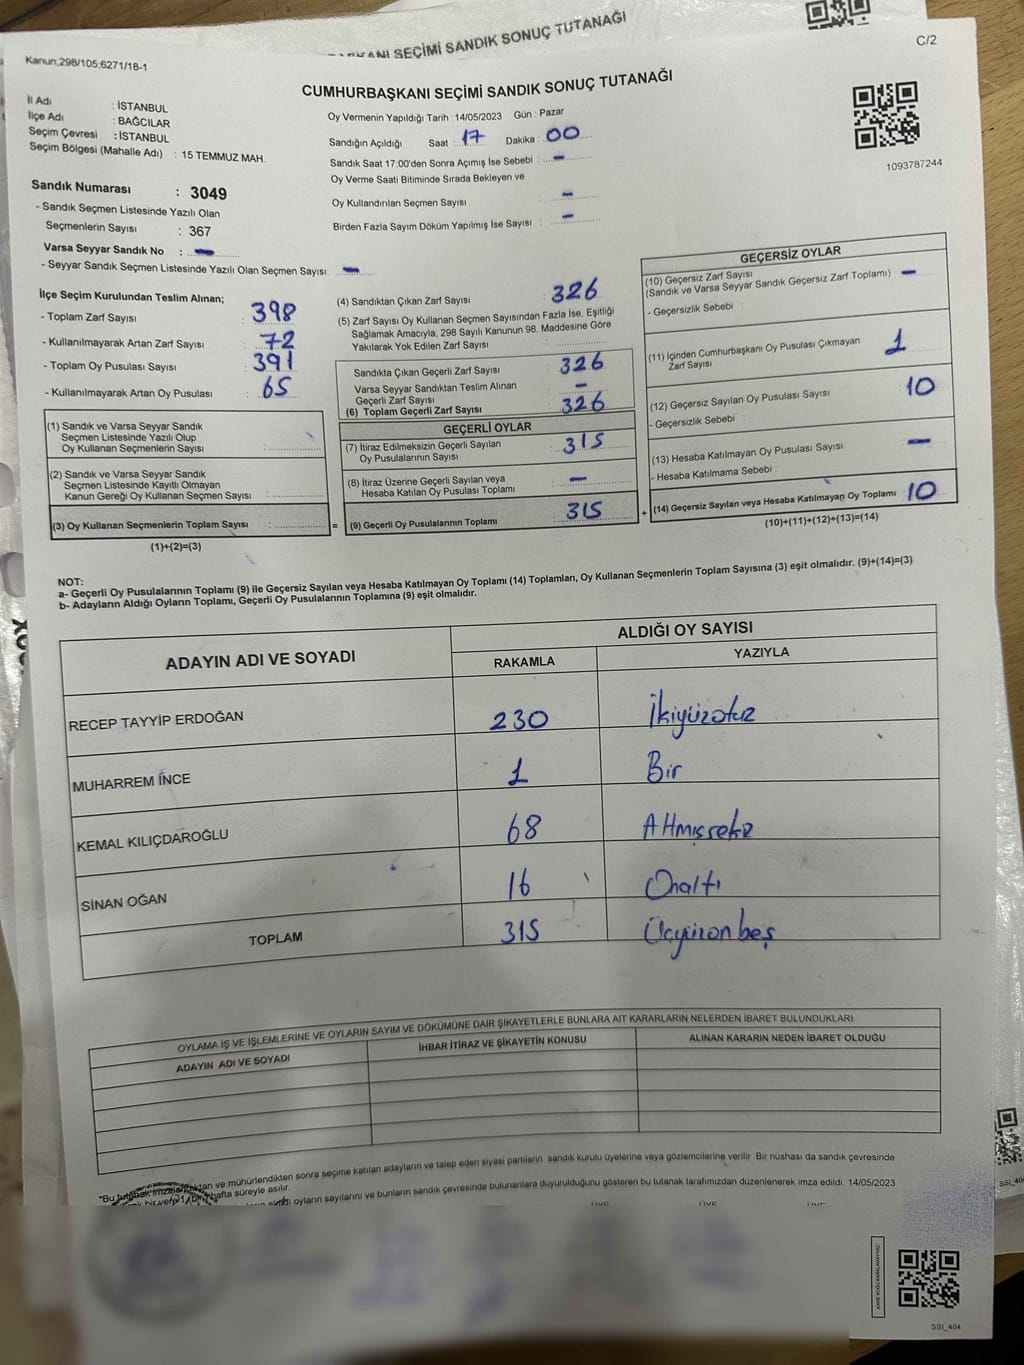 KANI SEÇİMİ SANDIK SONUÇ TUTANAĞI
C/2
Kanun;298/105;6271/18-1
CUMHURBAŞKANI SEÇİMİ SANDIK SONUÇ TUTANAĞI
İl Adı : İSTANBUL
İlçe Adı : BAĞCILAR
Seçim Çevresi : İSTANBUL
Seçim Bölgesi (Mahalle Adı) : 15 TEMMUZ MAH.
Oy Vermenin Yapıldığı Tarih : 14/05/2023 Gün : Pazar
Sandığın Açıldığı Saat : 17 Dakika : 00
Sandık Saat 17:00'den Sonra Açımış İse Sebebi : -
Oy Verme Saati Bitiminde Sırada Bekleyen ve
Oy Kullandırılan Seçmen Sayısı : -
Birden Fazla Sayım Döküm Yapılmış İse Sayısı : -
1093787244
Sandık Numarası : 3049
- Sandık Seçmen Listesinde Yazılı Olan
Seçmenlerin Sayısı : 367
Varsa Seyyar Sandık No : -
- Seyyar Sandık Seçmen Listesinde Yazılı Olan Seçmen Sayısı: -
İlçe Seçim Kurulundan Teslim Alınan;
- Toplam Zarf Sayısı : 398
- Kullanılmayarak Artan Zarf Sayısı : 72
- Toplam Oy Pusulası Sayısı : 391
- Kullanılmayarak Artan Oy Pusulası : 65
(4) Sandıktan Çıkan Zarf Sayısı : 326
(5) Zarf Sayısı Oy Kullanan Seçmen Sayısından Fazla İse, Eşitliği
Sağlamak Amacıyla, 298 Sayılı Kanunun 98. Maddesine Göre
Yakılarak Yok Edilen Zarf Sayısı :
Sandıkta Çıkan Geçerli Zarf Sayısı : 326
Varsa Seyyar Sandıktan Teslim Alınan
Geçerli Zarf Sayısı : -
(6) Toplam Geçerli Zarf Sayısı : 326
GEÇERLİ OYLAR
(7) İtiraz Edilmeksizin Geçerli Sayılan
Oy Pusulalarının Sayısı : 315
(8) İtiraz Üzerine Geçerli Sayılan veya
Hesaba Katılan Oy Pusulası Toplamı : -
(9) Geçerli Oy Pusulalarının Toplamı : 315
GEÇERSİZ OYLAR
(10) Geçersiz Zarf Sayısı
(Sandık ve Varsa Seyyar Sandık Geçersiz Zarf Toplamı) : -
- Geçersizlik Sebebi :
(11) İçinden Cumhurbaşkanı Oy Pusulası Çıkmayan
Zarf Sayısı : 1
(12) Geçersiz Sayılan Oy Pusulası Sayısı : 10
- Geçersizlik Sebebi :
(13) Hesaba Katılmayan Oy Pusulası Sayısı : -
- Hesaba Katılmama Sebebi :
+ (14) Geçersiz Sayılan veya Hesaba Katılmayan Oy Toplamı 10
(10)+(11)+(12)+(13)=(14)
(1) Sandık ve Varsa Seyyar Sandık
Seçmen Listesinde Yazılı Olup
Oy Kullanan Seçmenlerin Sayısı :
(2) Sandık ve Varsa Seyyar Sandık
Seçmen Listesinde Kayıtlı Olmayan
Kanun Gereği Oy Kullanan Seçmen Sayısı :
(3) Oy Kullanan Seçmenlerin Toplam Sayısı : =
(1)+(2)=(3)
NOT:
a- Geçerli Oy Pusulalarının Toplamı (9) ile Geçersiz Sayılan veya Hesaba Katılmayan Oy Toplamı (14) Toplamları, Oy Kullanan Seçmenlerin Toplam Sayısına (3) eşit olmalıdır. (9)+(14)=(3)
b- Adayların Aldığı Oyların Toplamı, Geçerli Oy Pusulalarının Toplamına (9) eşit olmalıdır.
ADAYIN ADI VE SOYADI
ALDIĞI OY SAYISI
RAKAMLA YAZIYLA
RECEP TAYYİP ERDOĞAN 230 İkiyüzotuz
MUHARREM İNCE 1 Bir
KEMAL KILIÇDAROĞLU 68 Altmışsekiz
SİNAN OĞAN 16 Onaltı
TOPLAM 315 Üçyüzonbeş
OYLAMA İŞ VE İŞLEMLERİNE VE OYLARIN SAYIM VE DÖKÜMÜNE DAİR ŞİKAYETLERLE BUNLARA AİT KARARLARIN NELERDEN İBARET BULUNDUKLARI
ADAYIN ADI VE SOYADI İHBAR İTİRAZ VE ŞİKAYETİN KONUSU ALINAN KARARIN NEDEN İBARET OLDUĞU
*Bu tutanak imzalandıktan ve mühürlendikten sonra seçime katılan adayların ve talep eden siyasi partilerin sandık kurulu üyelerine veya gözlemcilerine verilir. Bir nüshası da sandık çevresinde
hafta süreyle asılır.
oyların sayılarını ve bunların sandık çevresinde bulunanlara duyurulduğunu gösteren bu tutanak tarafımızdan düzenlenerek imza edildi. 14/05/2023
ÜYE ÜYE ÜYE
SSI_404